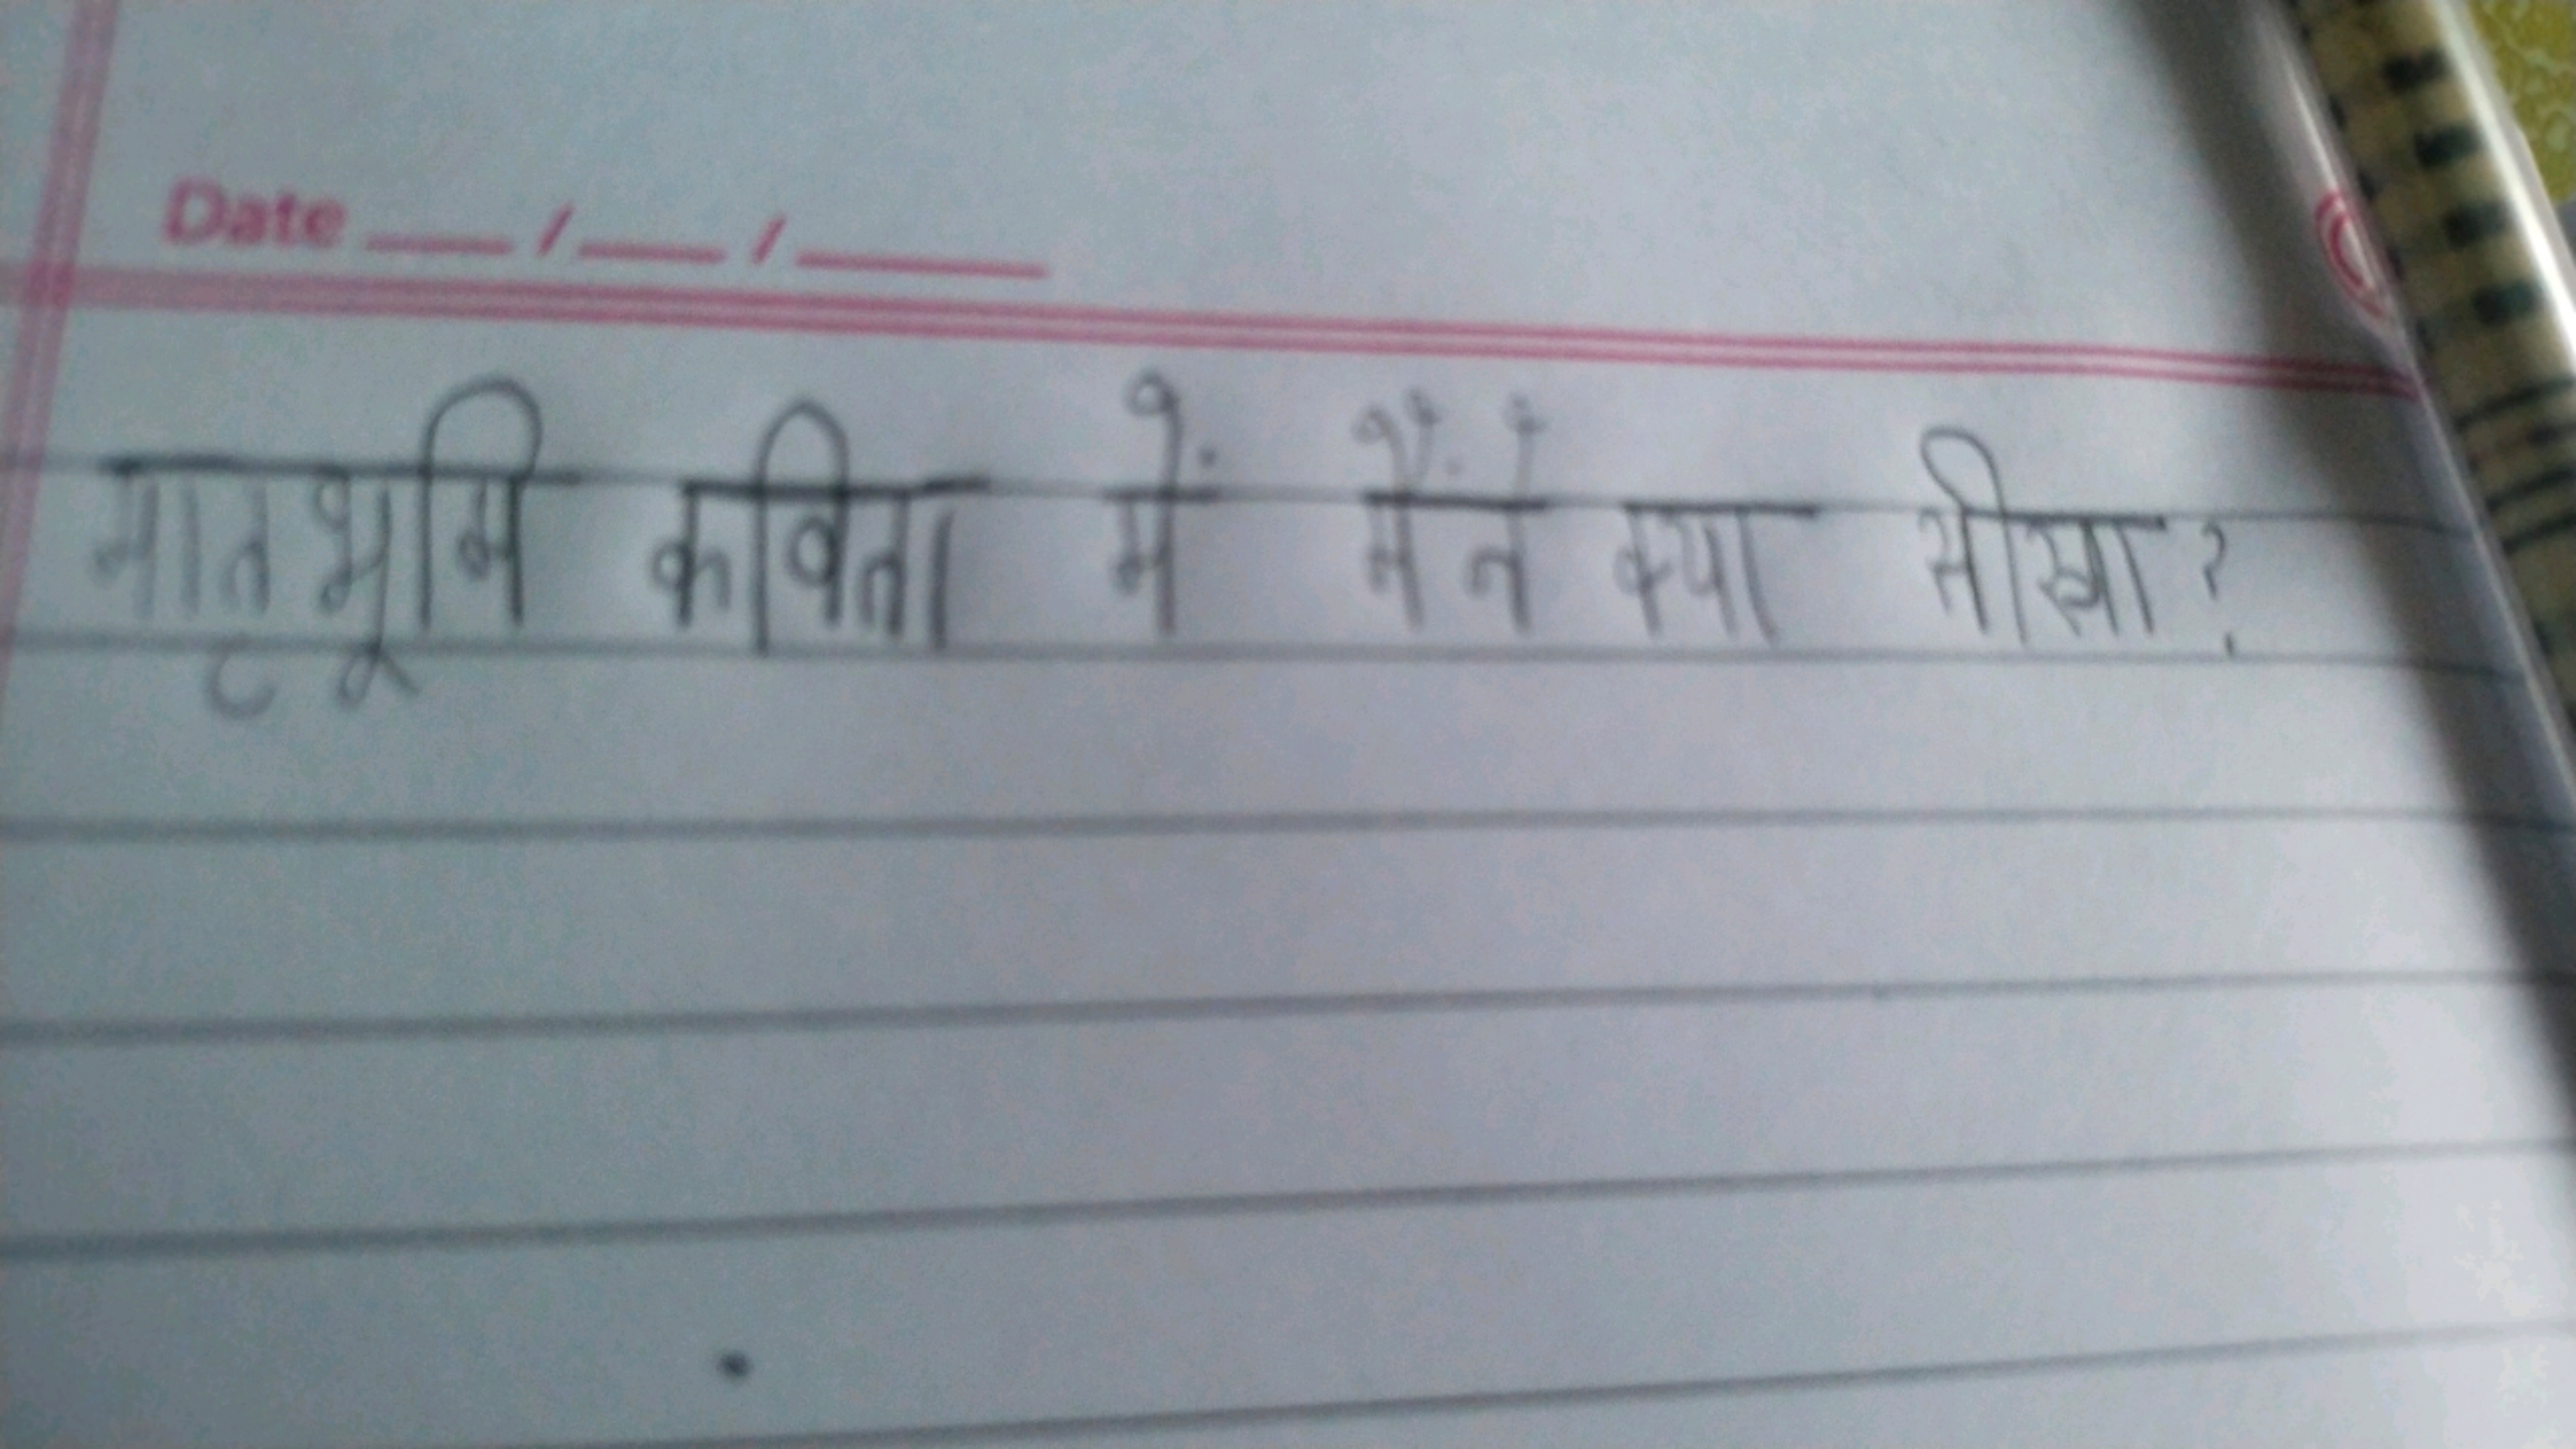 Date __/__/____
मातृभूमि कविता में मैंने क्या सीखा?